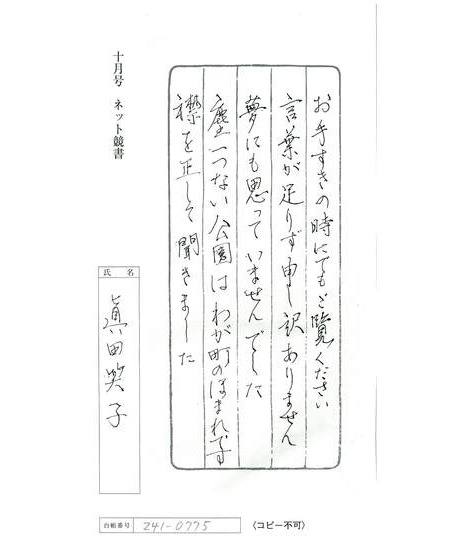 十月号 ネット競書
お手すきの時にでもご覧ください
言葉が足りず申し訳ありません
夢にも思っていませんでした
塵一つない公園はわが町のほまれです
襟を正して聞きました
氏名
眞田笑子
台帳番号 241-0775
〈コピー不可〉